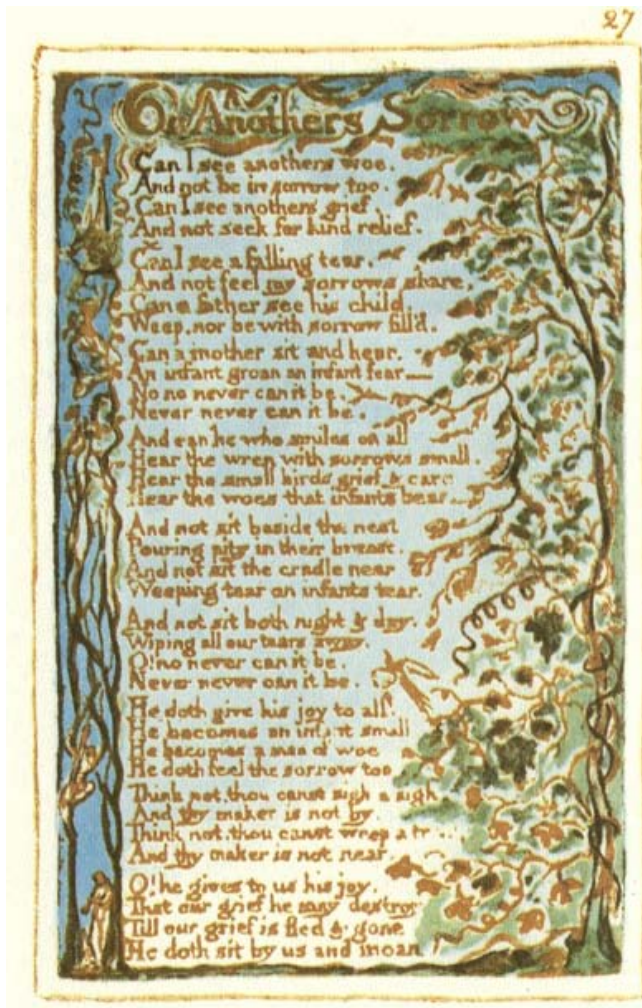 27
On Anothers Sorrow
Can I see anothers woe.
And not be in sorrow too.
Can I see anothers grief.
And not seek for kind relief.
Can I see a falling tear.
And not feel my sorrows share,
Can a father see his child,
Weep, nor be with sorrow fill'd.
Can a mother sit and hear.
An infant groan an infant fear—
No no never can it be.
Never never can it be.
And can he who smiles on all
Hear the wren with sorrows small.
Hear the small birds grief & care
Hear the woes that infants bear—
And not sit beside the nest
Pouring pity in their breast.
And not sit the cradle near
Weeping tear on infants tear.
And not sit both night & day.
Wiping all our tears away.
O! no never can it be.
Never never can it be.
He doth give his joy to all.
He becomes an infant small
He becomes a man of woe
He doth feel the sorrow too
Think not, thou canst sigh a sigh
And thy maker is not by.
Think not, thou canst weep a
And thy maker is not near.
O! he gives to us his joy.
That our grief he may destroy
Till our grief is fled & gone
He doth sit by us and moan